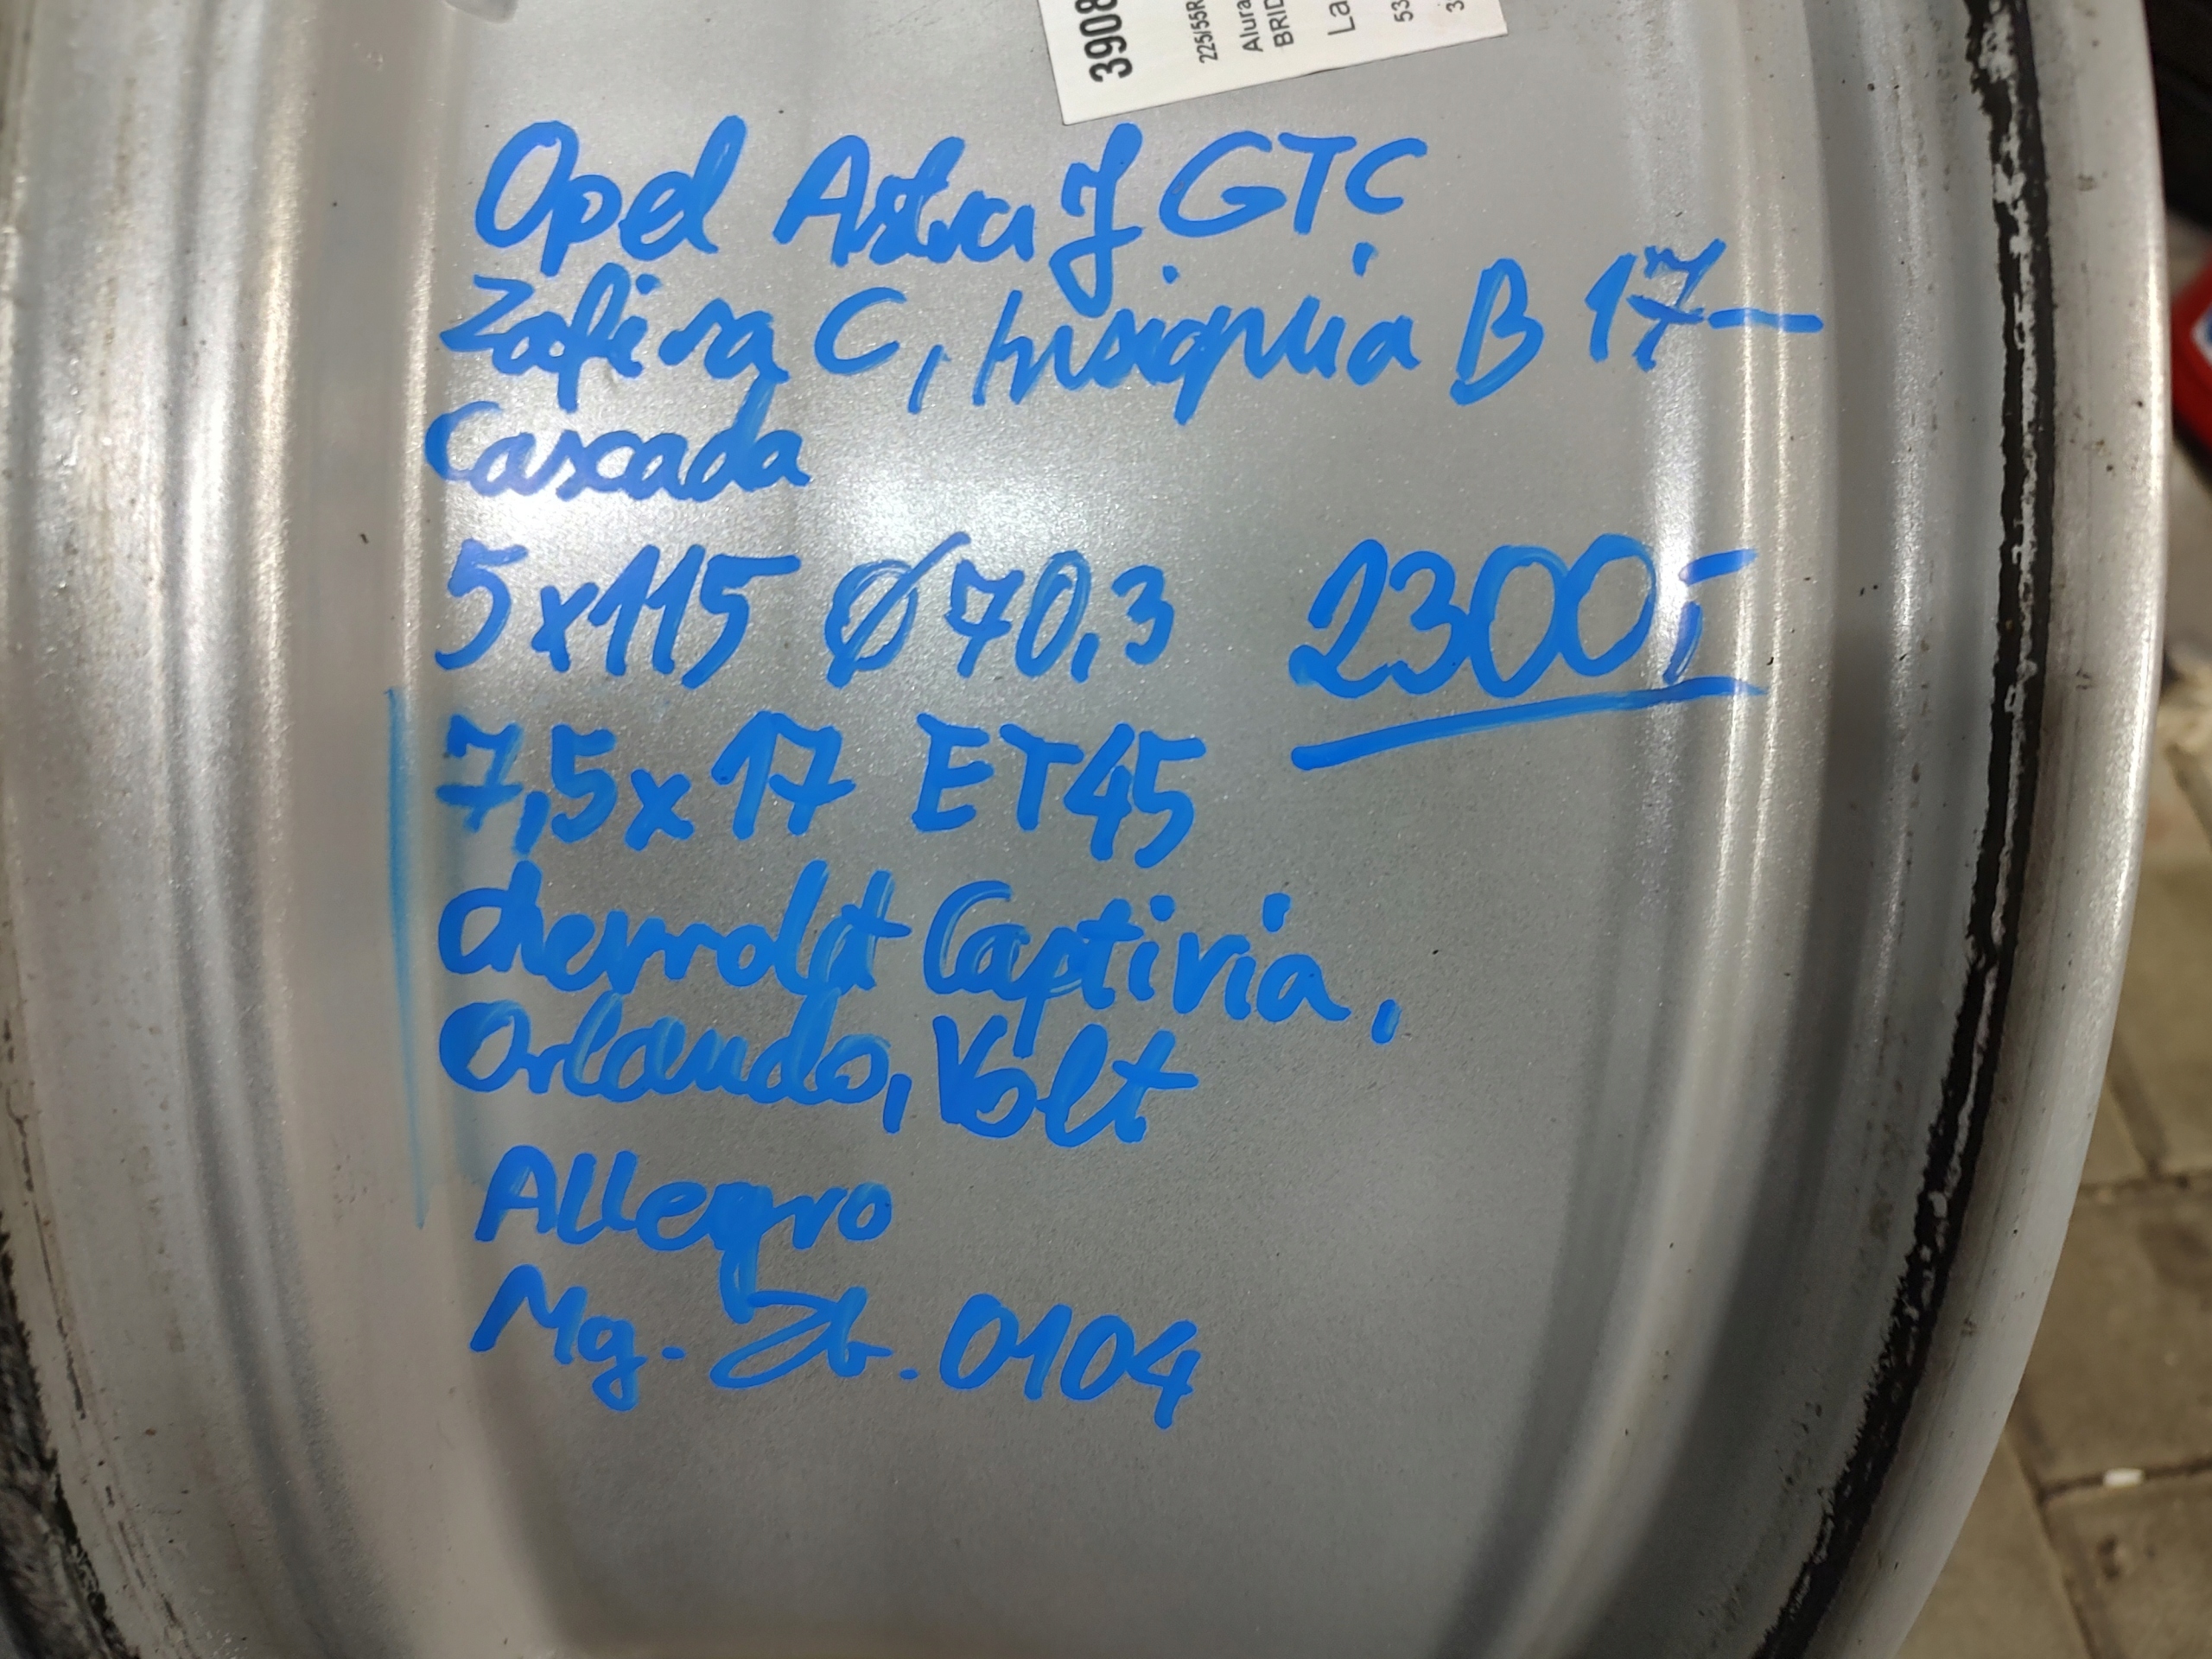 3908
225/55R
Alura
BRID
La
53
3
Opel Astra J GTC
Zafira C, Insignia B 17-
Cascada
5x115 Ø70,3 2300,-
7,5x17 ET45
Chevrolet Captivia,
Orlando, Volt
Allegro
Mg. Zb. 0104